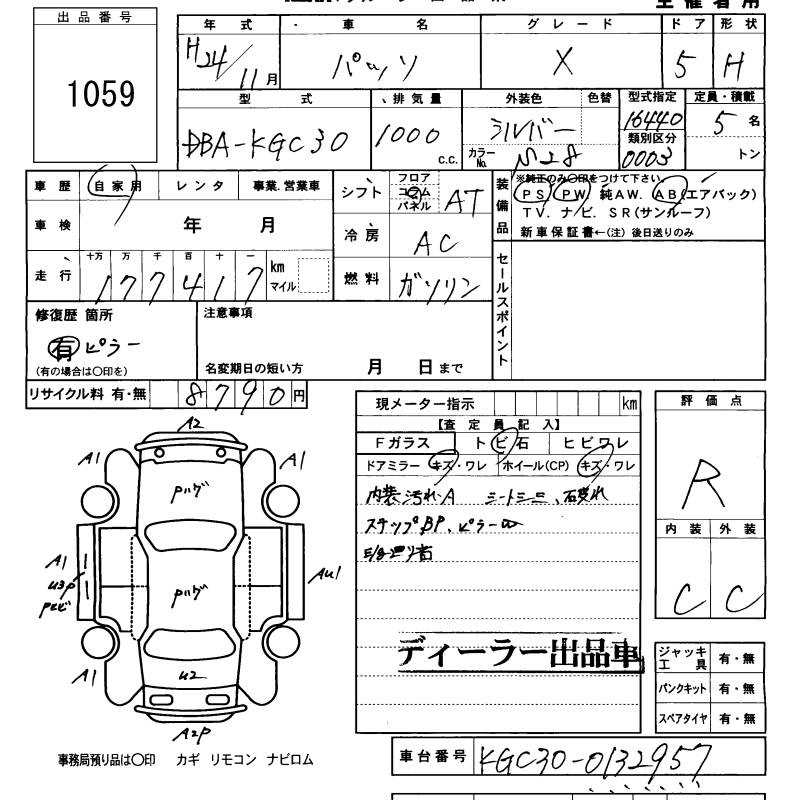 主催者用
出品番号
1059
年式 車名 グレード ドア 形状
H24/11月 パッソ X 5 H
型式 排気量 外装色 色替 型式指定 定員・積載
DBA-KGC30 1000 c.c. シルバー 16440 5名
カラーNo. 類別区分 0003 トン
車歴 自家用 レンタ 事業.営業車
車検 年 月
走行 十万 万 千 百 十 一
177417 km マイル
シフト フロア コラム パネル AT
冷房 AC
燃料 ガソリン
装備品
※純正のみ〇印をつけて下さい.
PS PW 純AW. AB(エアバック)
TV. ナビ. SR(サンルーフ)
新車保証書←(注)後日送りのみ
セールスポイント
修復歴 箇所
有 ピラー
(有の場合は〇印を)
注意事項
名変期日の短い方 月 日まで
リサイクル料 有・無 8790円
現メーター指示 km
【査定員記入】
Fガラス トビ石 ヒビワレ
ドアミラー キズ・ワレ ホイール(CP) キズ・ワレ
内装汚れ・A
ステップBP、ピラーW
ディーラー出品車
評価点
R
内装 外装
C C
ジャッキ工具 有・無
パンクキット 有・無
スペアタイヤ 有・無
A2
A1 A1
A1
U3P
AU1
U2
A1 A1
A2P
事務局預り品は〇印 カギ リモコン ナビロム
車台番号 KGC30-0132957